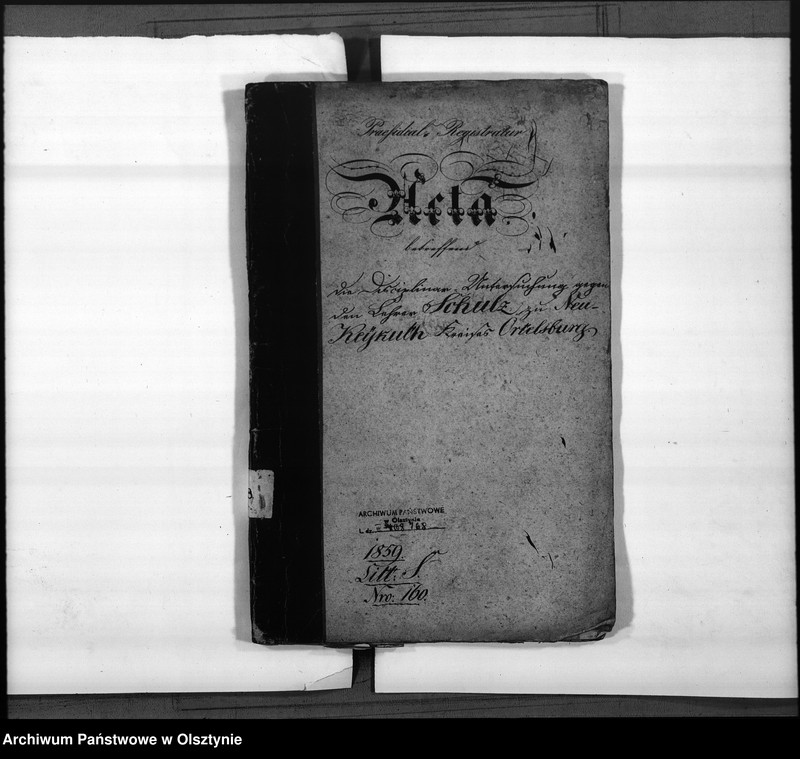 Praesidial-Registratur
Acta
betreffend
die Disciplinar-Untersuchung gegen
den Lehrer Schulz zu Neu-
Keykuth Kreises Ortelsburg
ARCHIWUM PAŃSTWOWE
Olsztynie
1859
Litt: S.
Nro: 160.
Archiwum Państwowe w Olsztynie